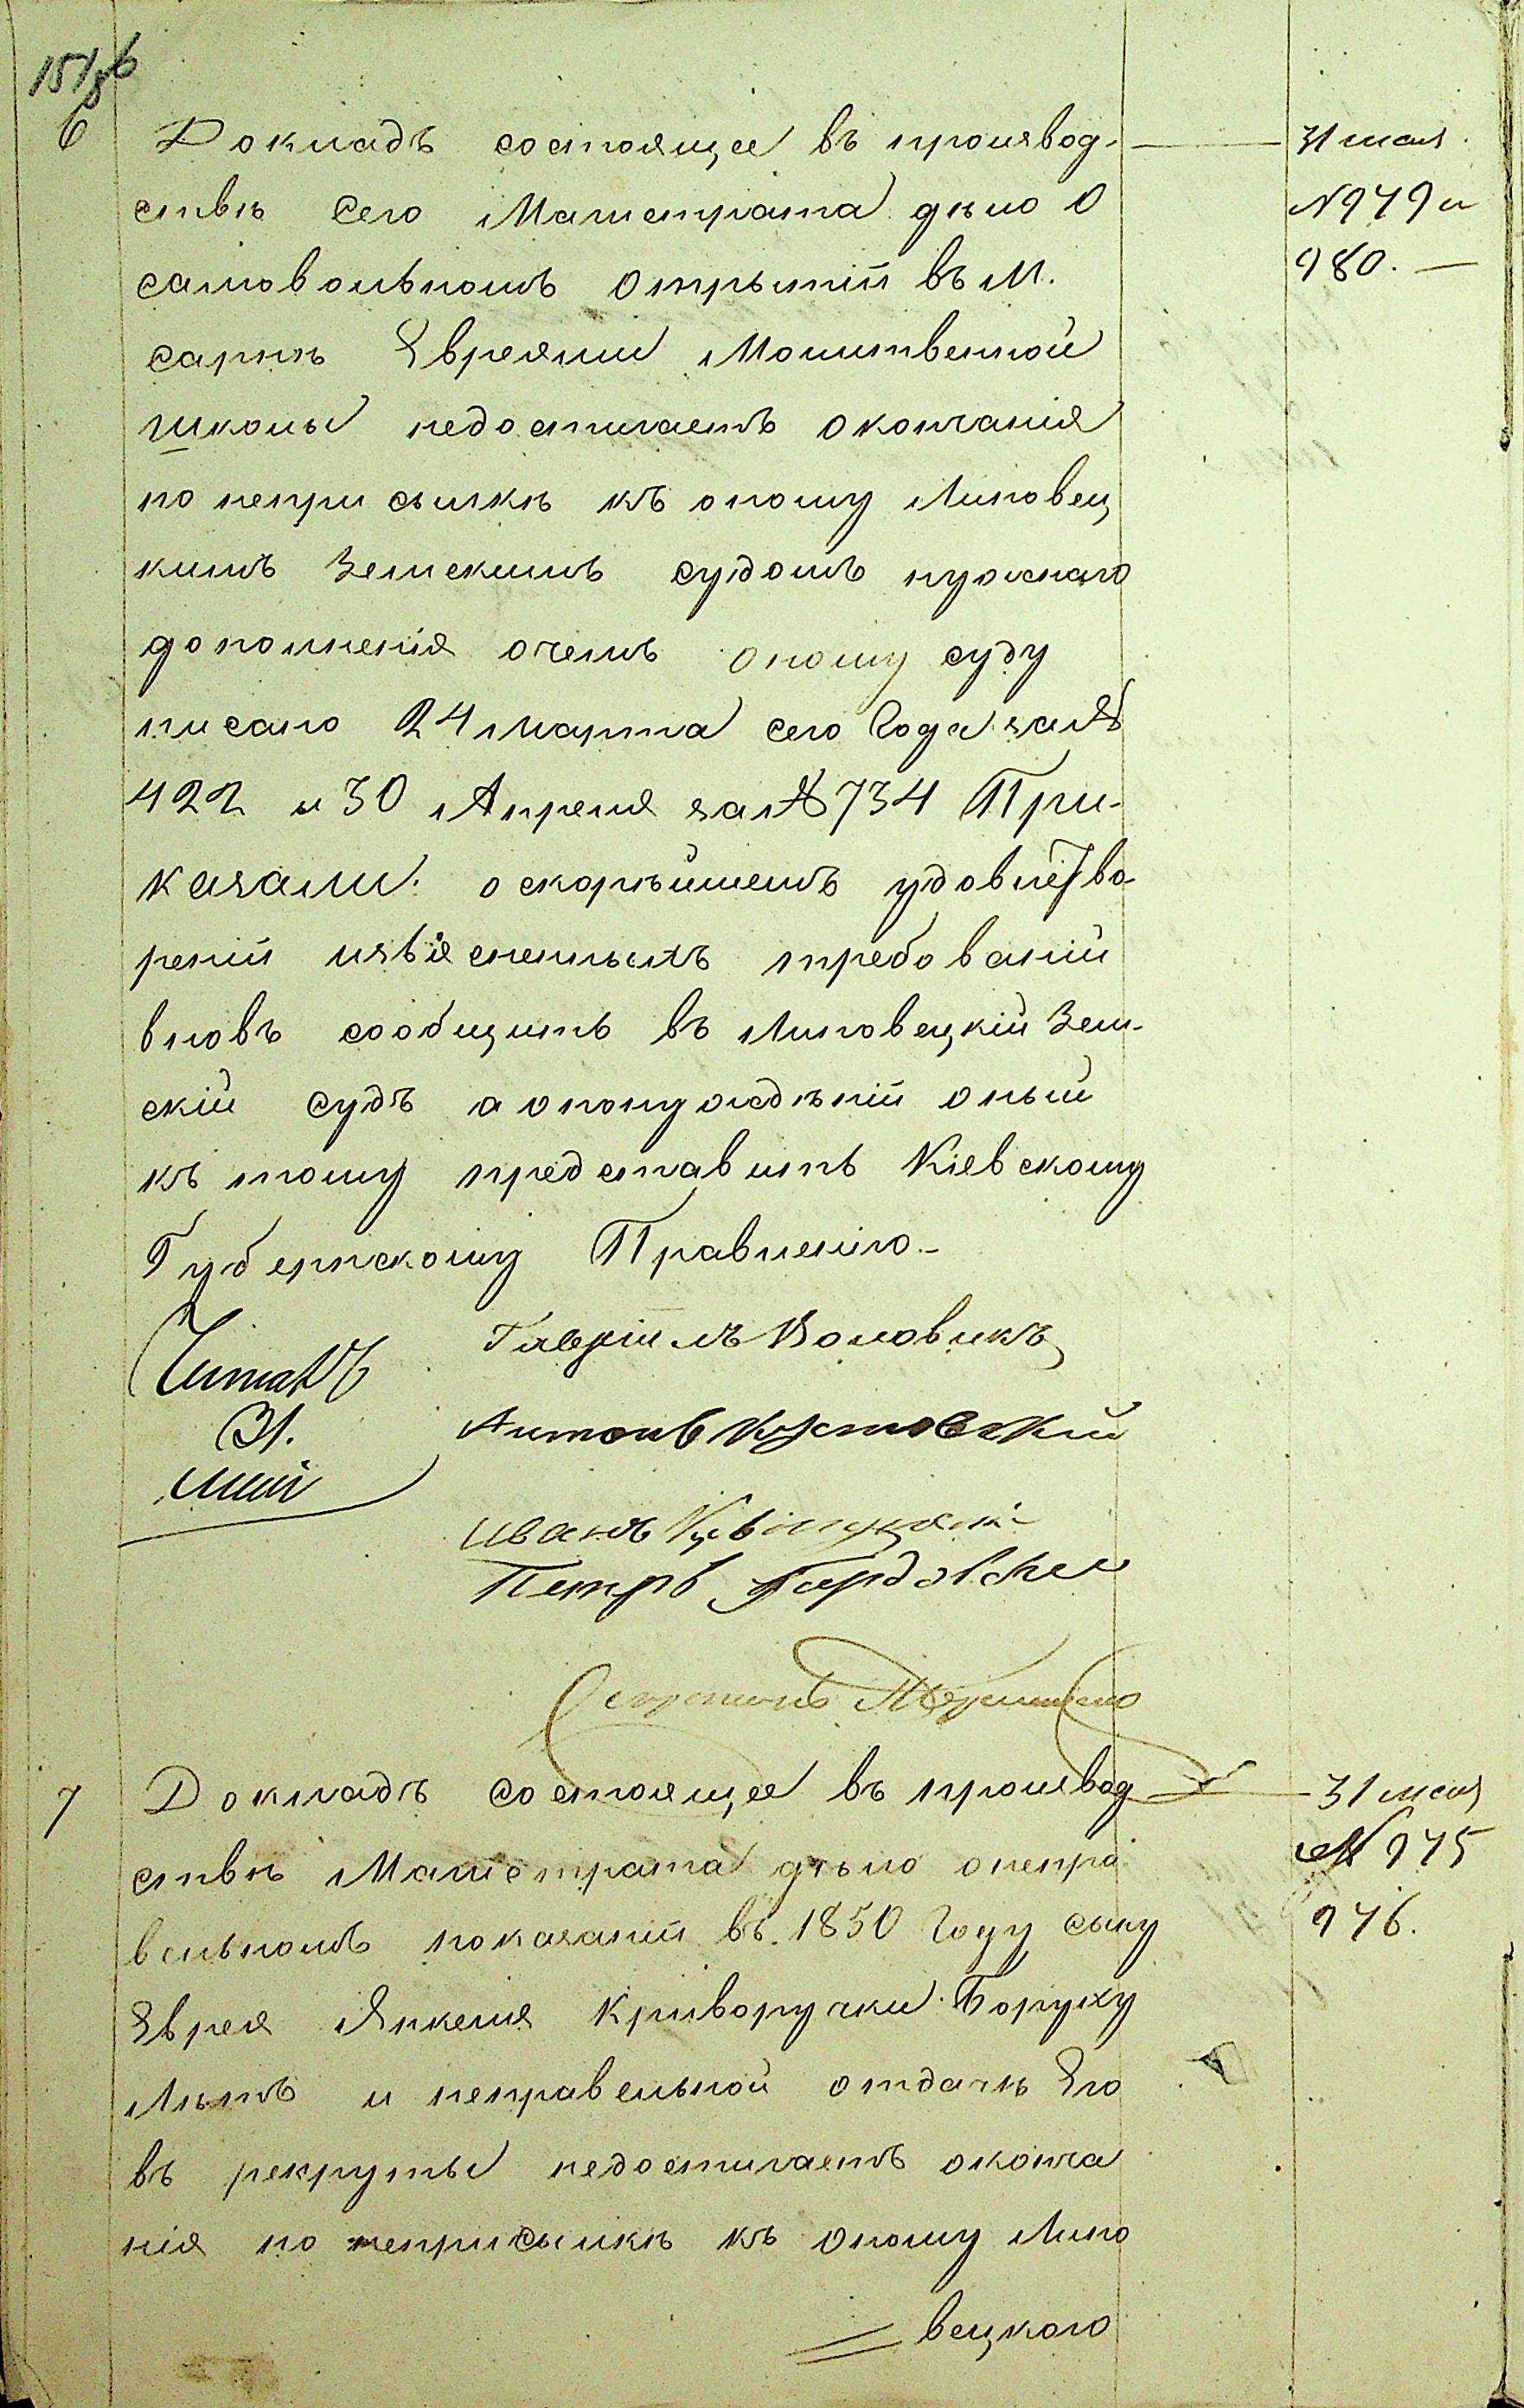 6
Докладъ состоящее въ производ-
31 мая
ствѣ сего Магистрата дѣло О
№979 и
самовольномъ открытіи въ М.
980. —
Сарнѣ Евреями Молитвенной
школы недостигаетъ окончанія
по неприсылкѣ къ оному Липовец
кимъ Земскимъ судомъ нужнаго
дополненія очемъ оному суду
писано 24 марта сего Года за№
422 и 30 Апреля за№734 При-
казали: оскорѣйшемъ удовлетво-
реніи изъясненныхъ требованій
вновь сообщить въ Липовецкій Зем-
скій судъ а опонужденіи оный
къ тому представить Кіевскому
Губернскому Правленію.-
Гавріилъ Воловикъ
Читалъ
31.
мая
Антонъ
Иванъ
Петръ
7
Докладъ состоящее въ производ
31 мая
ствѣ Магистрата дѣло онепра
№ 975
вельномъ показаніи въ 1850 Году сыну
976.
Еврея Янкеля Криворучки Боруху
Лѣтъ и неправельной отдачѣ Его
въ рекруты недостигаетъ оконча
нія по неприсылкѣ къ оному Липо
вецкого